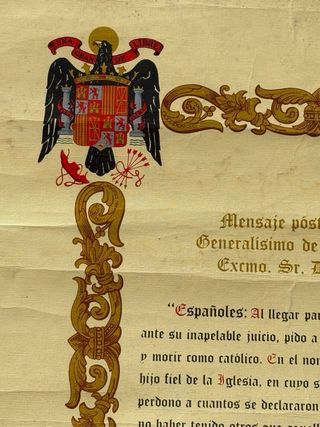 UNA GRANDE LIBRE
Mensaje póst
Generalísimo de
Excmo. Sr. D
“Españoles: Al llegar par
ante su inapelable juicio, pido a
y morir como católico. En el nom
hijo fiel de la Iglesia, en cuyo s
perdono a cuantos se declararon
no haber tenido otros que aquell